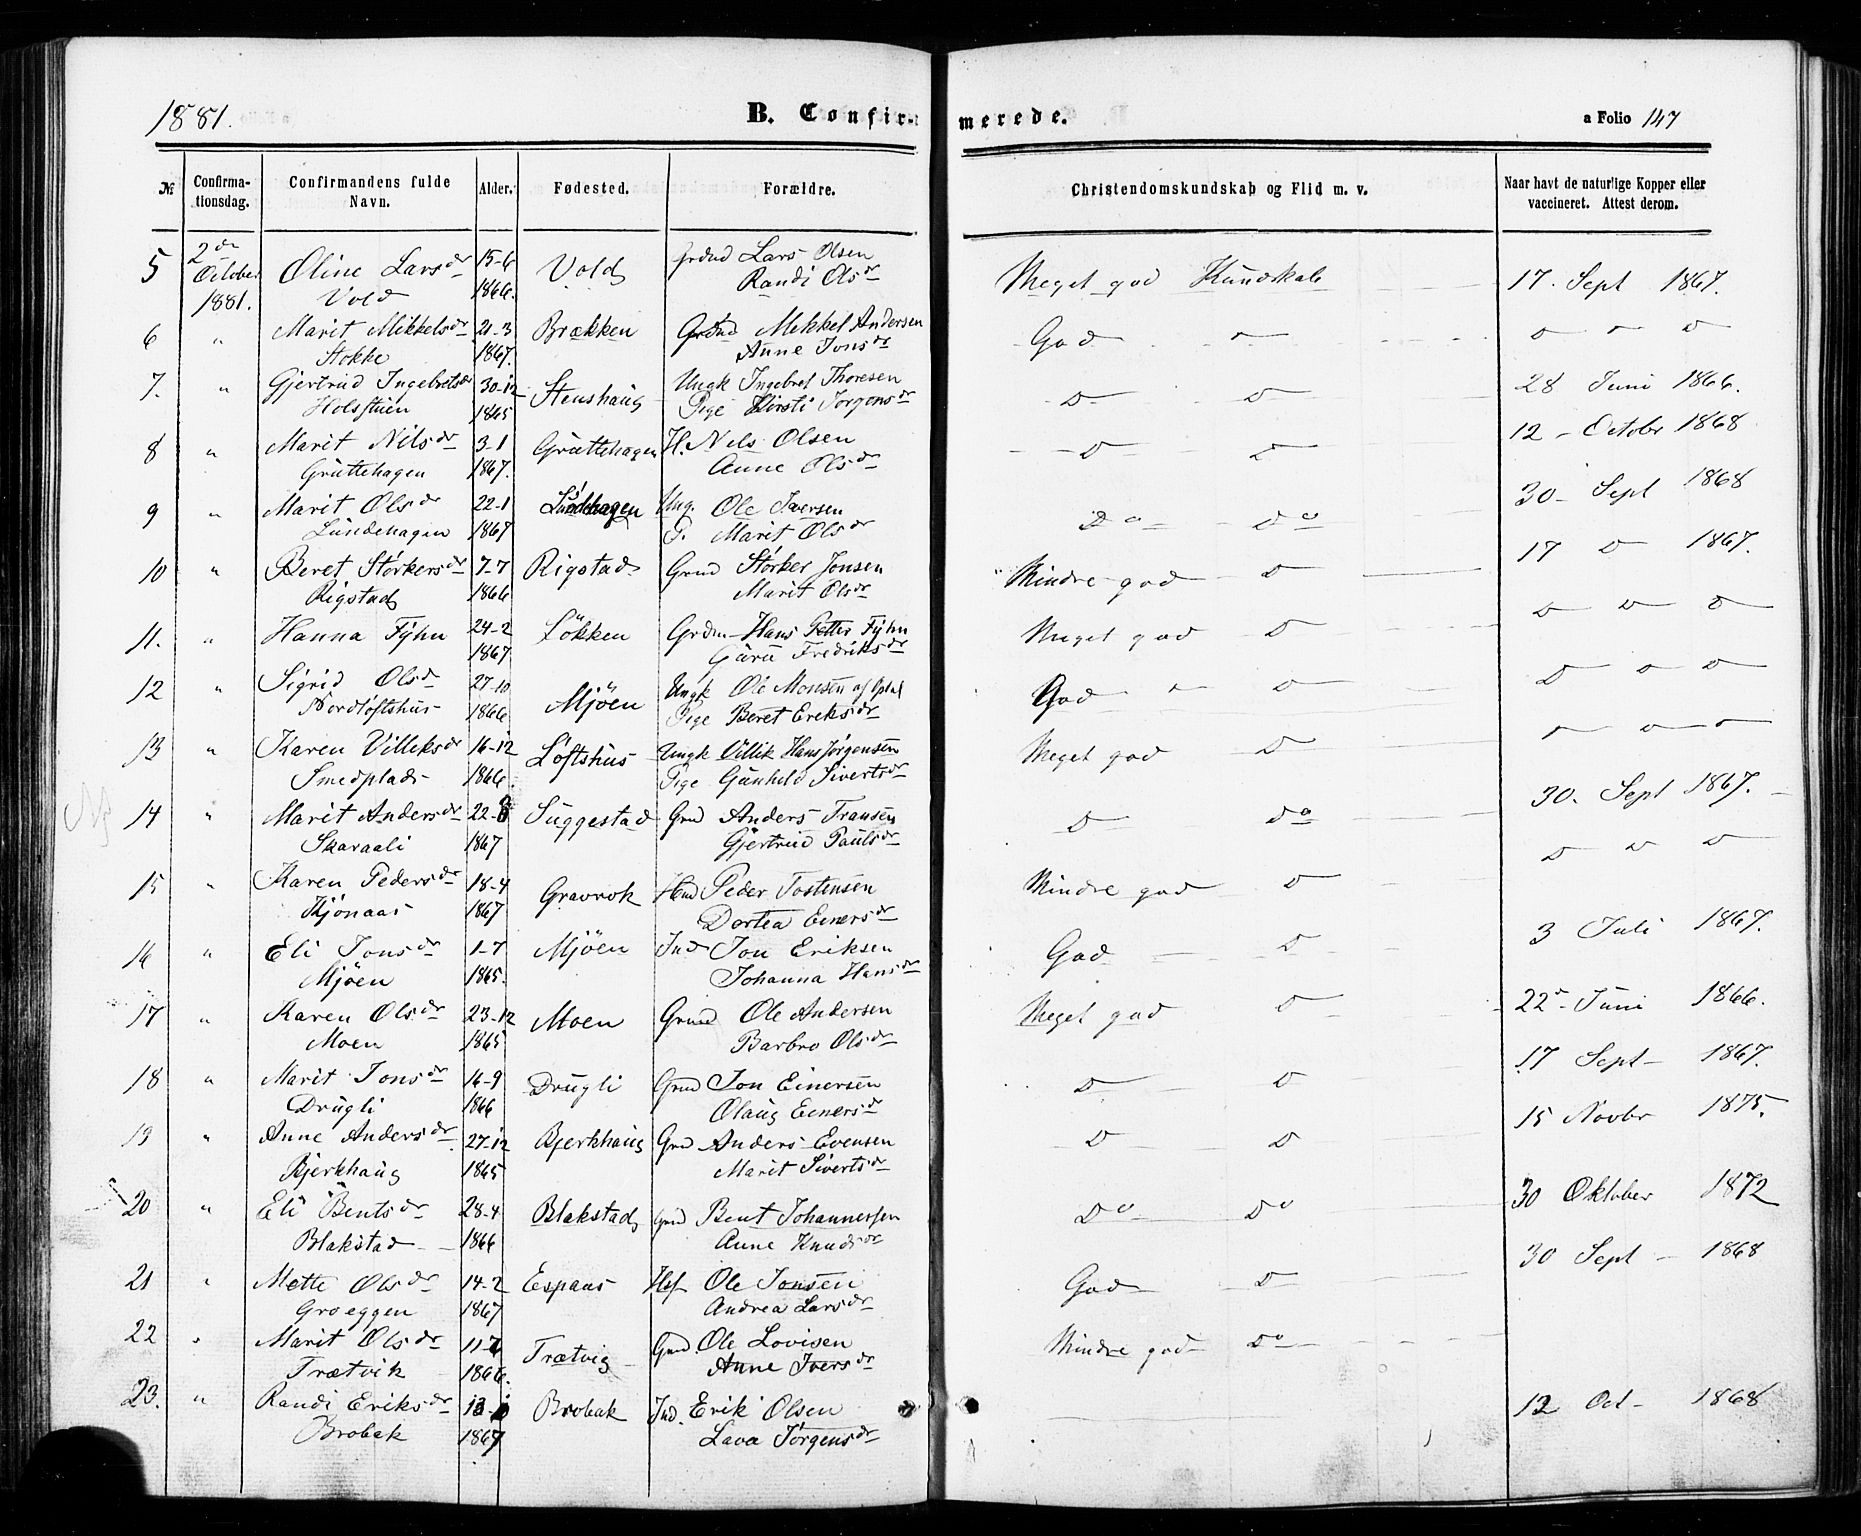 1881.
B. Confirmerede.
a Folio 147
№ Confirmationsdag. Confirmandens fulde Navn. Alder. Fødested. Forældre. Christendomskundskab og Flid m. v. Naar havt de naturlige Kopper eller vaccineret. Attest derom.
5 2den October Oline Larsdr 15-6 Vold Grdmd Lars Olsen Meget god Kundskab 17. Sept 1867.
1881. Vold 1866. Randi Olsdr
6 " Marit Mikkelsdr 21-3 Brækken Grdmd Mikkel Andersen God " D " D
Stokke 1867. Anne Jonsdr
7. " Gjertrud Ingebretsdr 30-12 Stenshaug Ungk Ingebret Thoresen D D 28 Juni 1866.
Holsstuen 1865 Pige Kirsti Jørgensdr
8 " Marit Nilsdr 3-1 Grüttehagen H. Nels Olsen D D 12 - Octobr 1868
Grüttehagen 1867. Anne Olsdr
9 " Marit Olsdr 22-1 Lundehagen Ung. Ole Iversen Do Do 30 - Sept 1868
Lundehagen 1867 P. Marit Olsdr
10 " Beret Størkersdr 7-7 Rigstad Grmd Størker Jonsen Mindre god D 17 D 1867.
Rigstad 1866 Marit Olsdr
11. " Hanna Fyhn 24-2 Løkken Grdm Hans Petter Fyhn Meget god D D D D
1867 Guru Fredriksdr
12 " Sigrid Olsdr 27-10 Mjöen Ungk Ole Monsen af Opdal God " D D D D
Nordløftshus 1866 Pige Beret Ereksdr
13 " Karen Villeksdr 16-12 Løftshus Ungk Villik Hans Jørgensen Meget god D " " "
Smedplads 1866. Pige Gunhild Sivertsdr
14 " Marit Andersdr 22-8 Suggestad Grmd Anders Fransen D Do 30. Sept 1867.
Skaraali 1867 Gjertrud Paulsdr
15 " Karen Pedersdr 18-4 Gravrok Hmd Peder Tostensen Mindre god D D " D
Kjönaas 1867 Dortea Einersdr
16 " Eli Jonsdr 1-7 Mjöen Ind Jon Eriksen God D 3 Juli 1867.
Mjöen 1865. Johanna Hansdr
17 " Karen Olsdr 23-12 Moen Grmd Ole Andersen Meget god D 22 - Juni 1866.
Moen 1865 Barbro Olsdr
18 " Marit Jonsdr 16-9 Drugli Grmd Jon Einersen D D 17 Sept 1867.
Drugli 1866 Olaug Einersdr
19 " Anne Andersdr 27-12 Bjerkhaug Grmd Anders Evensen D D 15 Novbr 1875.
Bjerkhaug 1865 Marit Sivertsdr
20 " Eli Bentsdr 28-4 Blakstad Grmd Bent Johannessen Do Do 30 Oktober 1872
Blakstad 1866 Anne Knudsdr
21 " Mette Olsdr 14-2 Espaas Ole Jonsen God D 30 Sept 1868
Groeggen 1867 Andrea Larsdr
22 " Marit Olsdr 11-7 Trætvig Grmd Ole Lovisen Mindre god Do
Trætvik 1866. Anne Iversdr
23. " Randi Eriksdr Brobak Ind. Erik Olsen 12 Oct 1868
Brobak 1867 Lava Jørgensdr